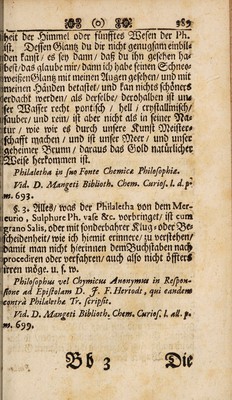 (o) 389
heit der Himmel oder fünfftes Wesen der Ph.
ist. Dessen Glantz du dir nicht genugsam einbil-
den kanst / es sey dann / daß du ihn gesehen ha-
best / das glaube mir / dann ich habe seinen Schnee
weißen Glantz mit meinen Augen gesehen / und mit
meinen Händen betastet / und kan nichts schöners
erdacht werden / als derselbe / derohalben ist un-
ser Wasser recht pontisch / hell / crystallinisch /
sauber / und rein / ist aber nicht als in seiner Na-
tur / wie wir es durch unsere Kunst Meister-
schafft machen / und ist unser Meer / und unser
geheimer Brunn / daraus das Gold natürlicher
Weise herkommen ist.
Philaletha in suo Fonte Chemicæ Philosophiæ.
Vid. D. Mangeti Biblioth. Chem. Curios. l. d. p.
m. 693.
§. 3. Alles / was der Philaletha von dem Mer-
curio, Sulphure Ph. vase &c. vorbringet / ist cum
grano Salis, oder mit sonderbahrer Klug- oder Be-
scheidenheit / wie ich hiemit erinnere / zu verstehen /
damit man nicht hierinnen dem Buchstaben nach
procediren oder verfahren / auch also nicht öffters
irren möge. u. s. w.
Philosophus vel Chymicus Anonymus in Respon-
sione ad Epistolam D. J. F. Herrodt, qui eandem
contrà Philaletha Tr. scripsit.
Vid. D. Mangeti Biblioth. Chem. Curios. l. all. p.
m. 699.
Bb 3 Die